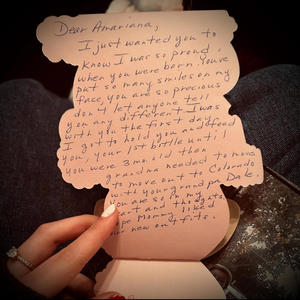 Dear Amariana,
I just wanted you to
know I was so proud
when you were born. You've
put so many smiles on my
face, you are so precious
don't let anyone tell
you any different I was
with you the first day
I got to hold you and feed
you, your 1st bottle until
you were 3 mo. old then
grandma needed to move
to move out to Colorado
with your grandpa Dale.
you are so in my
heart and thoughts
hope Mommy liked
your new outfits.